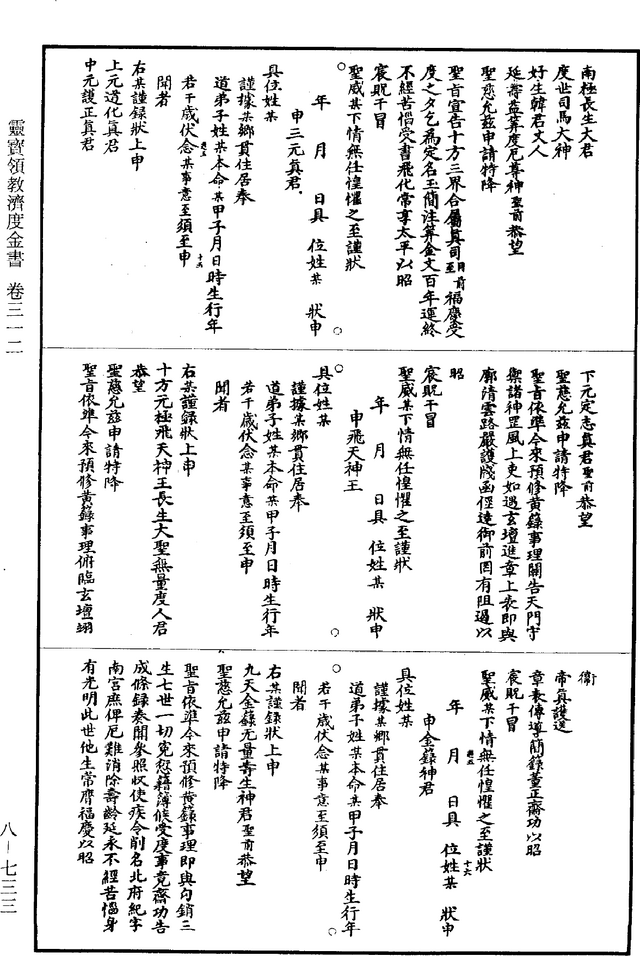 靈寶領教濟度金書 卷三一二
南極長生大君
度世司馬大神
好生韓君丈人
延壽益算度厄尊神聖前恭望
聖慈允茲申請特降
聖旨宣告十方三界合屬真司目前至福慶受
度之夕乞為定名玉簡注算金文百年運終
不經苦惱受書飛化常享太平以昭
宸貺干冒
聖威某下情無任惶懼之至謹狀
年 月 日具 位姓某 狀申
申三元真君
具位姓某
謹據某鄉貫住居奉
道弟子姓某本命某甲子月日時生行年
若干歲伏念某事意至須至申
聞者
右某謹錄狀上申
上元道化真君
中元護正真君
下元定志真君聖前恭望
聖慈允茲申請特降
聖旨依準今來預修黃籙事理關告天門守
禦諸神罡風上吏如遇玄壇進章上表即與
廓清雲路嚴護牋函徑達御前罔有阻遏以
昭
宸貺干冒
聖威某下情無任惶懼之至謹狀
年 月 日具 位姓某 狀申
申飛天神王
具位姓某
謹據某鄉貫住居奉
道弟子姓某本命某甲子月日時生行年
若干歲伏念某事意至須至申
聞者
右某謹錄狀上申
十方元極飛天神王長生大聖無量度人君
恭望
聖慈允茲申請特降
聖旨依準今來預修黃籙事理俯臨玄壇翊
衛
帝真護送
章表傳導簡錄董正齋功以昭
宸貺干冒
聖威某下情無任惶懼之至謹狀
年 月 日具 位姓某 狀申
申金籙神君
具位姓某
謹據某鄉貫住居奉
道弟子姓某本命某甲子月日時生行年
若干歲伏念某事意至須至申
聞者
右某謹錄狀上申
九天金籙无量壽生神君聖前恭望
聖慈允茲申請特降
聖旨依準今來預修黃籙事理即與勾銷三
生七世一切冤愆籍簿候受度事竟齋功告
成條錄奏聞參照收使疾令削名北府紀字
南宮庶俾厄難消除壽齡延永不經苦惱身
有光明此世他生常膺福慶以昭
八－七三三